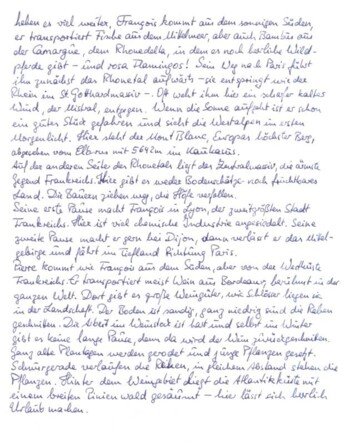 haben es viel weiter, François kommt aus dem sonnigen Süden,
er transportiert Fische aus dem Mittelmeer, aber auch Bambus aus
der Camargue, dem Rhonedelta, in dem es noch herrliche Wild-
pferde gibt – und rosa Flamingos! Sein Weg nach Paris führt
ihn zunächst das Rhonetal aufwärts – sie entspringt wie der
Rhein im St Gotthardmassiv –. Oft weht ihm hier ein scharfer kalter
Wind, der Mistral, entgegen. Wenn die Sonne aufgeht ist er schon
ein gutes Stück gefahren und sieht die Westalpen im ersten
Morgenlicht. Hier steht der Mont Blanc, Europas höchster Berg,
abgesehen vom Elbrus mit 5642m im Kaukasus.
Auf der anderen Seite des Rhonetales liegt das Zentralmassiv, die ärmste
Gegend Frankreichs. Hier gibt es weder Bodenschätze noch fruchtbares
Land. Die Bauern ziehen weg, die Höfe verfallen.
Seine erste Pause macht François in Lyon, der zweitgrößten Stadt
Frankreichs. Hier ist viel chemische Industrie angesiedelt. Seine
zweite Pause macht er gern bei Dijon, dann verlässt er das Mittel-
gebirge und fährt im Tiefland Richtung Paris.
Pierre kommt wie François aus dem Süden, aber von der Westküste
Frankreichs. Er transportiert meist Wein aus Bordeaux, berühmt in der
ganzen Welt. Dort gibt es große Weingüter, wie Schlösser liegen sie
in der Landschaft. Der Boden ist sandig, ganz niedrig sind die Reben
geschnitten. Die Arbeit im Weinstock ist hart und selbst im Winter
gibt es keine lange Pause, denn da wird der Wein zurückgeschnitten.
Ganz alte Plantagen werden gerodet und junge Pflanzen gesetzt.
Schnurgerade verlaufen die Reihen, in gleichem Abstand stehen die
Pflanzen. Hinter dem Weingebiet liegt die Atlantikküste mit
einem breiten Pinienwald gesäumt – hier lässt sich herrlich
Urlaub machen.